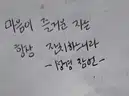 마음이 즐거운 자는
항상 잔치하느니라
- 성경 잠언 -